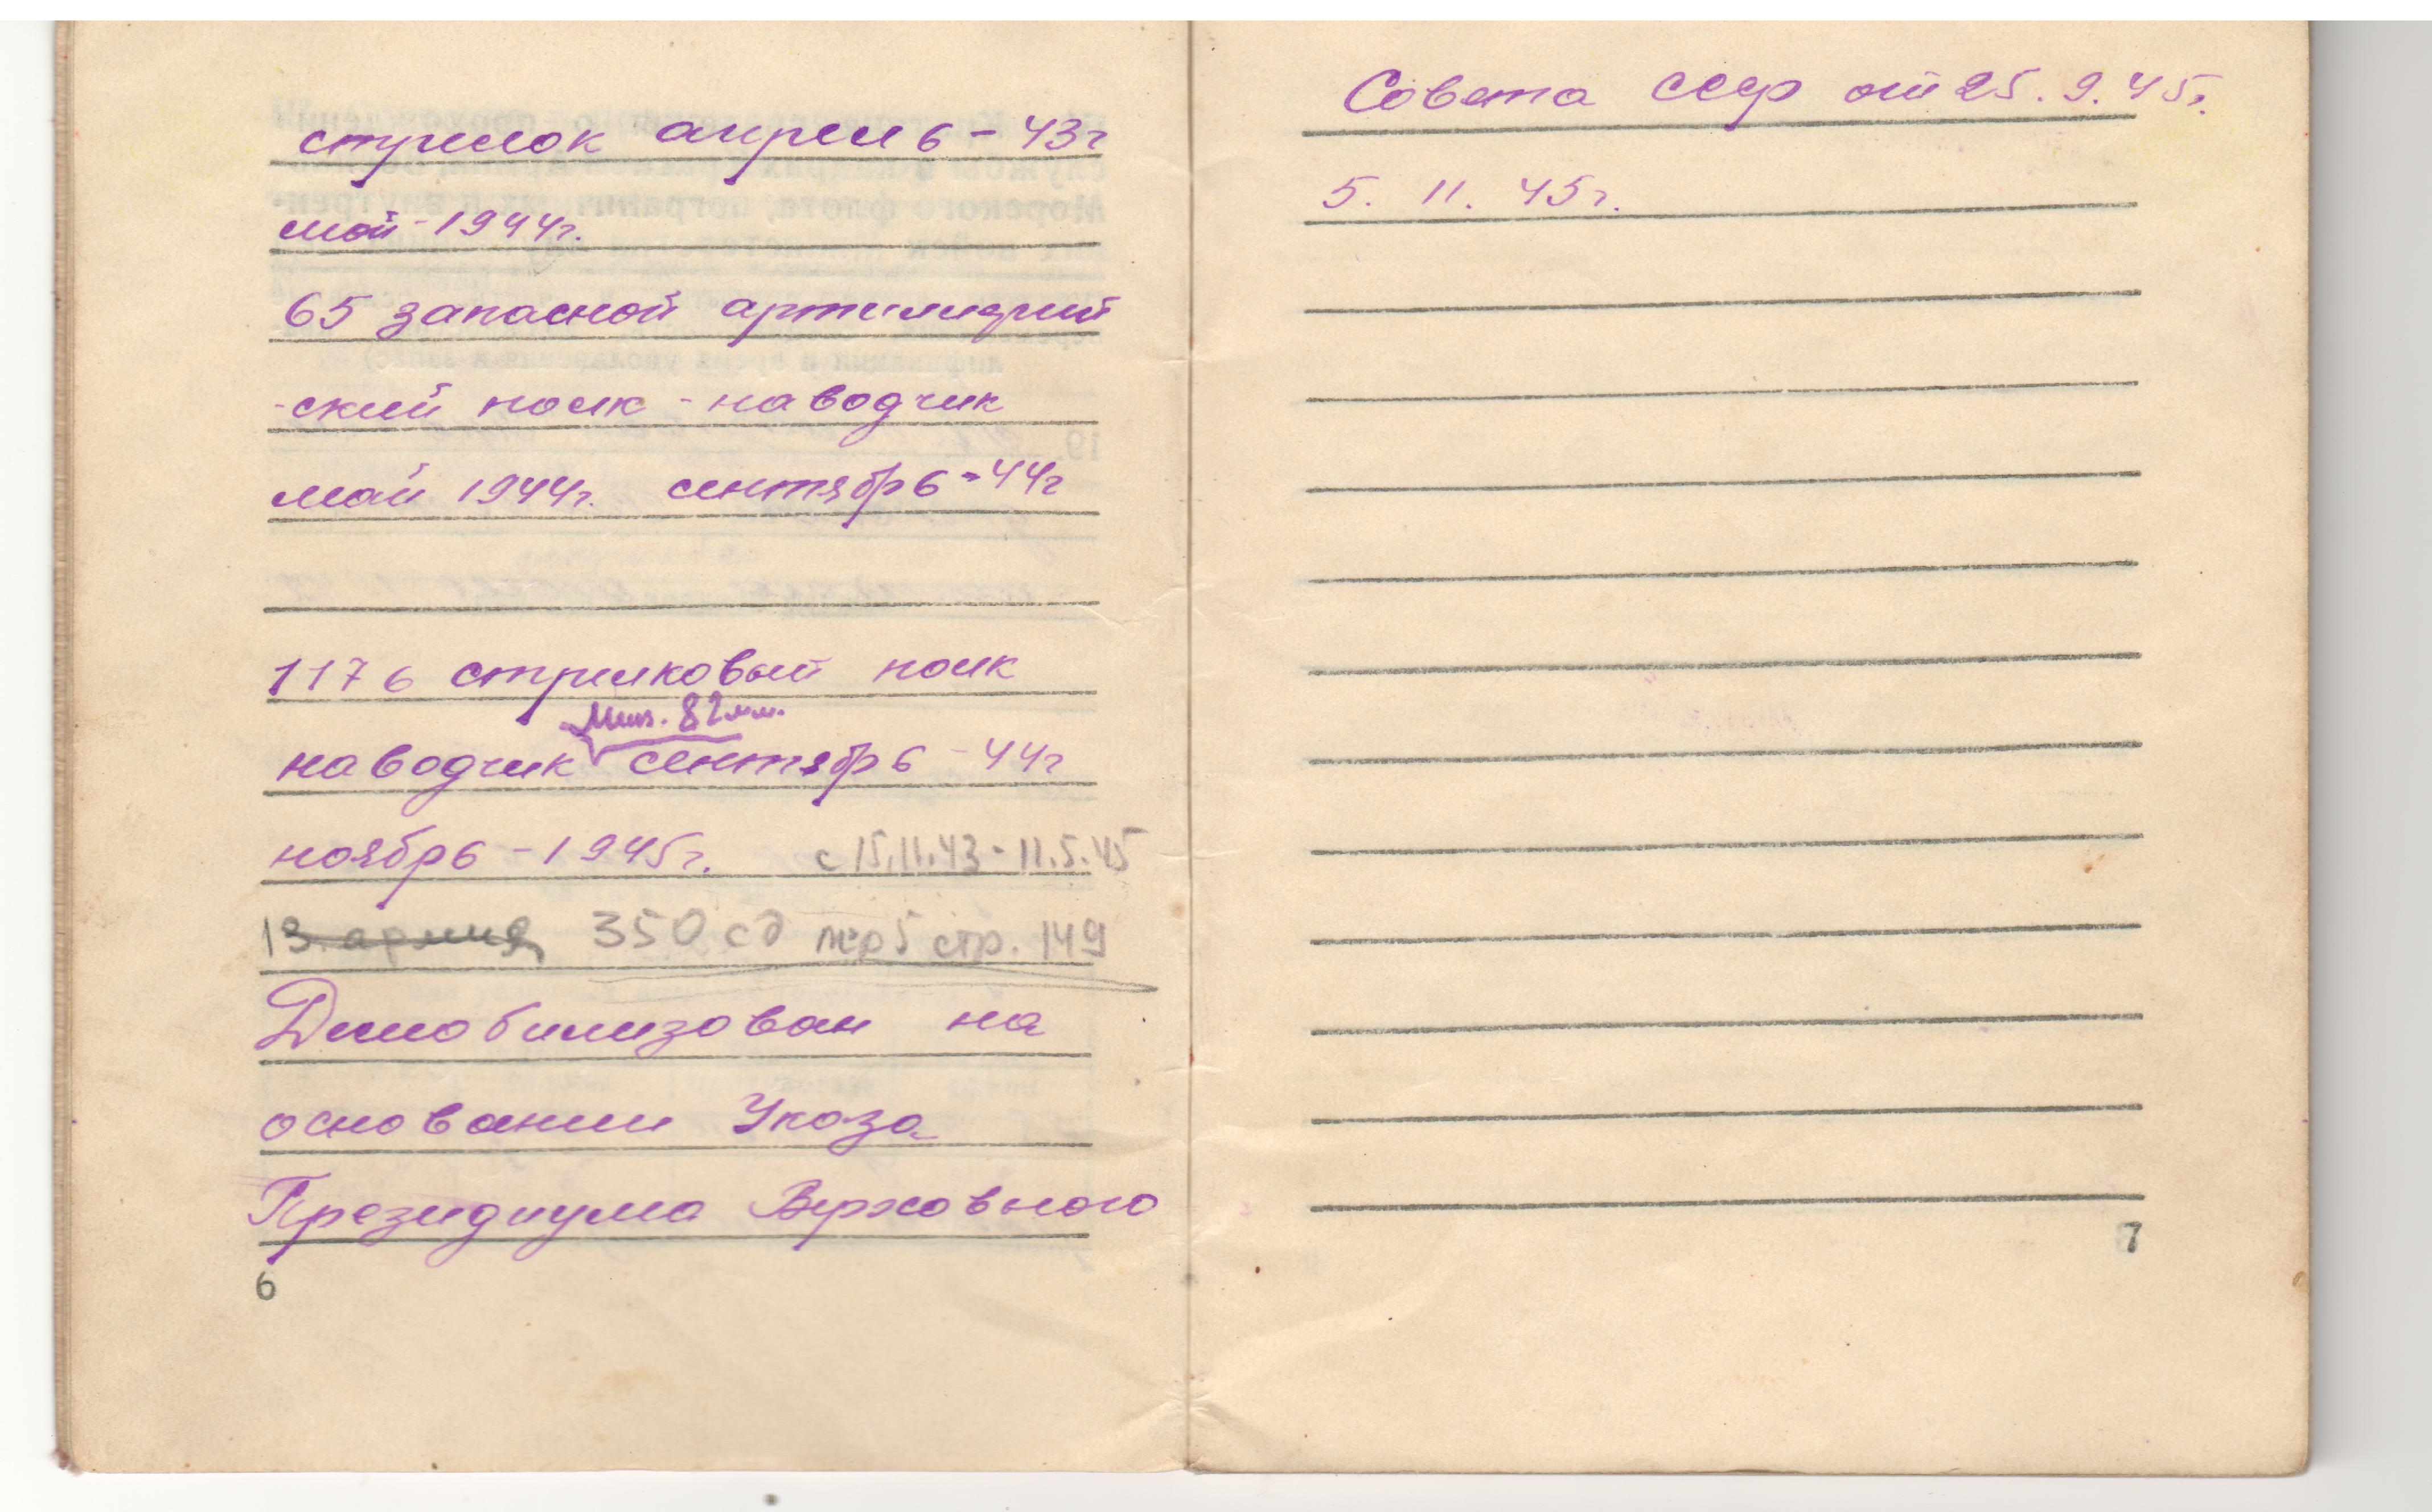 стрелок апрель - 43г
май - 1944г.
65 запасной артиллерий
-ский полк - наводчик
май 1944г. сентябрь - 44г
1176 стрелковый полк
Мин. 82мм.
наводчик сентябрь - 44г
ноябрь - 1945г. с 15.11.43 - 11.5.45
13 армия 350 сд пер5 стр. 149
Демобилизован на
основании Указа
Президиума Верховного
6
Совета ссср от 25.9.45г.
5. 11. 45г.
7